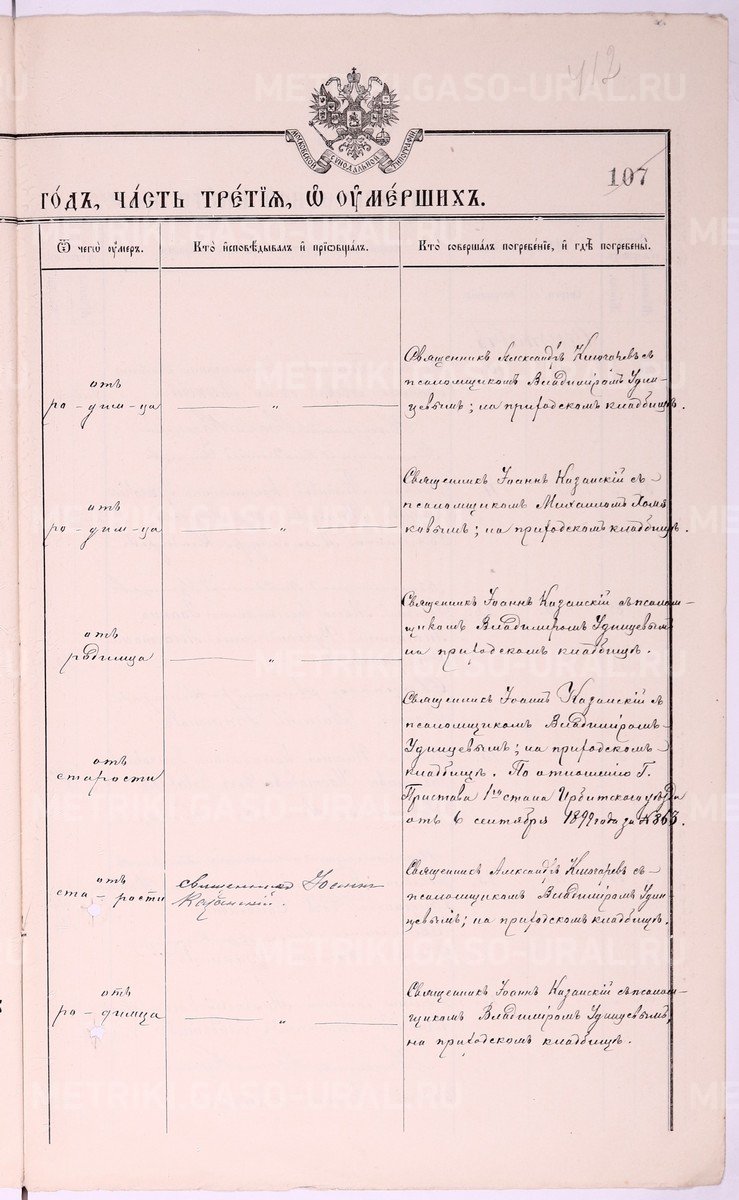 412
МОСКОВСКОЙ СѴНОДАЛЬНОЙ ТИПОГРАФІИ
107
ГО́ДЪ, ЧА́СТЬ ТРЕ́ТІѦ, Ѡ҆ ОУ҆МЕ́РШИХЪ.
Ѿ чегѡ̀ оу҆́меръ.
Кто̀ и҆сповѣ́дывалъ и҆ прїѡбща́лъ.
Кто̀ соверша́лъ погребе́нїе, и҆ гдѣ̀ погребены̀.
отъ
ро-дим-ца
— „ —
Священникъ Александръ Ключаревъ съ
псаломщикомъ Владиміромъ Удин-
цевымъ; на приходскомъ кладбищѣ.
отъ
ро-дим-ца
— „ —
Священникъ Іоаннъ Казанскій съ
псаломщикомъ Михаиломъ Хомя
ковымъ; на приходскомъ кладбищѣ.
отъ
родимца
— „ —
Священникъ Іоаннъ Казанскій съ псалом-
щикомъ Владиміромъ Удинцевымъ
на приходскомъ кладбищѣ.
отъ
старости
Священникъ Іоаннъ Казанскій съ
псаломщикомъ Владиміромъ
Удинцевымъ; на приходскомъ
кладбищѣ. По отношенію Г.
Пристава 1го стана Ирбитскаго уѣзда
отъ 6 сентября 1899 года за № 863.
отъ
ста-рости
священникъ Іоаннъ
Казанскій.
Священникъ Александръ Ключаревъ съ
псаломщикомъ Владиміромъ Удин
цевымъ; на приходскомъ кладбищѣ.
отъ
ро-димца
— „ —
Священникъ Іоаннъ Казанскій съ псалом-
щикомъ Владиміромъ Удинцевымъ,
на приходскомъ кладбищѣ.
METRIKI.GASO-URAL.RU